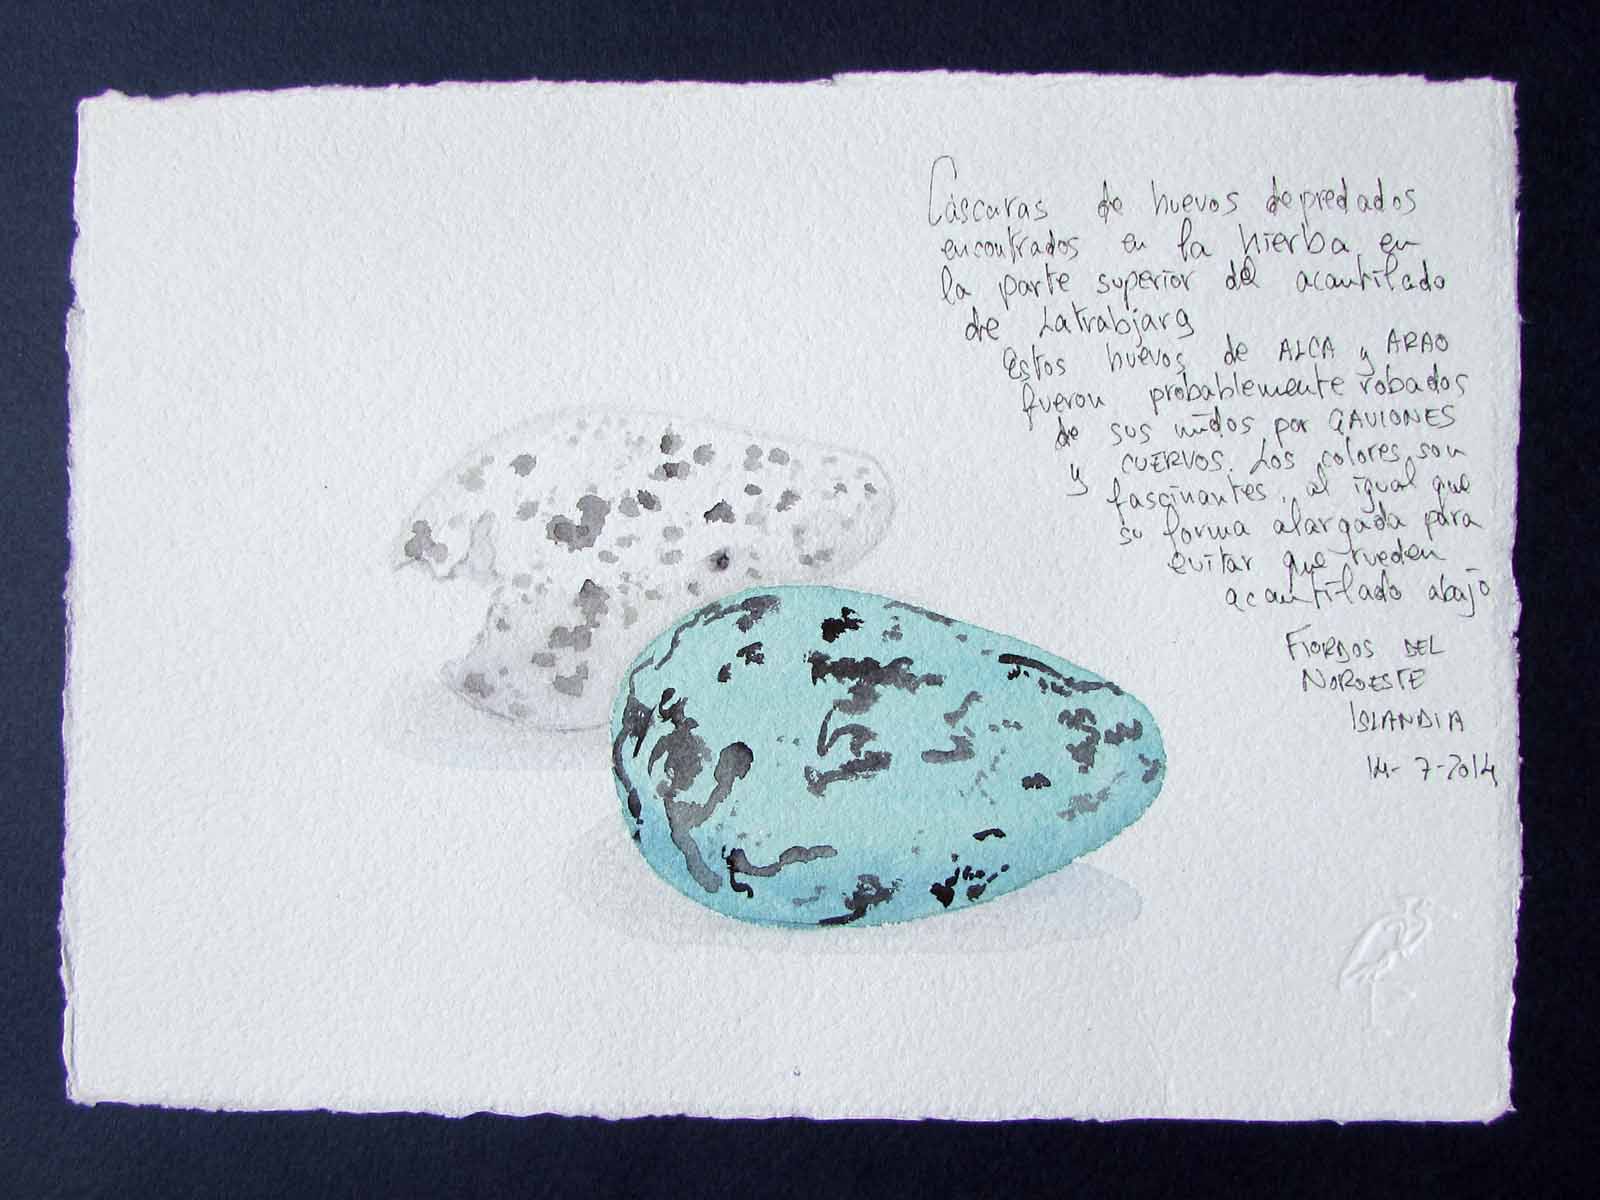 Cáscaras de huevos depredados
encontrados en la hierba en
la parte superior del acantilado
de Latrabjarg
Estos huevos de ALCA y ARAO
fueron probablemente robados
de sus nidos por GAVIONES
y CUERVOS. Los colores son
fascinantes, al igual que
su forma alargada para
evitar que rueden
acantilado abajo
FIORDOS DEL
NOROESTE
ISLANDIA
14-7-2014